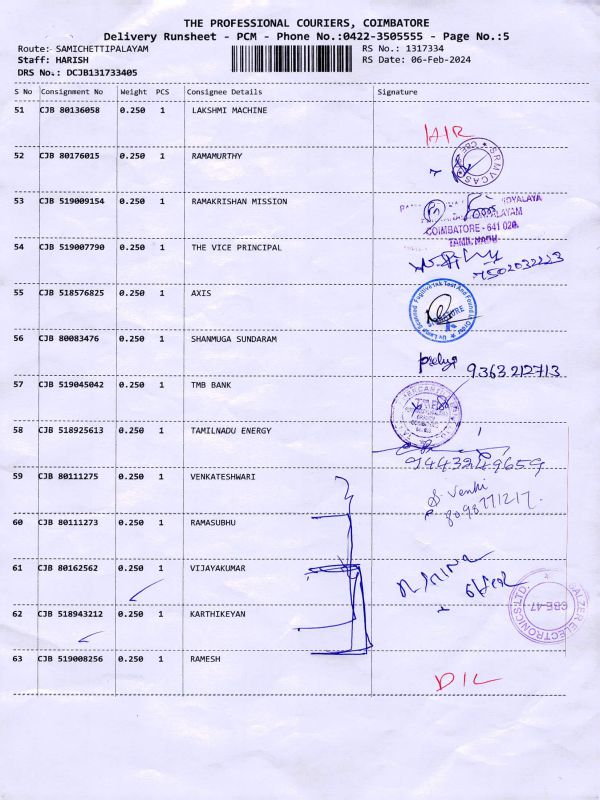 THE PROFESSIONAL COURIERS, COIMBATORE
Delivery Runsheet - PCM - Phone No.:0422-3505555 - Page No.:5
Route: SAMICHETTIPALAYAM RS No.: 1317334
Staff: HARISH RS Date: 06-Feb-2024
DRS No.: DCJB131733405
S No Consignment No Weight PCS Consignee Details Signature
51 CJB 80136058 0.250 1 LAKSHMI MACHINE
52 CJB 80176015 0.250 1 RAMAMURTHY
SRMVCAS
53 CJB 519009154 0.250 1 RAMAKRISHAN MISSION
COIMBATORE - 641 020.
TAMIL NADU
54 CJB 519007790 0.250 1 THE VICE PRINCIPAL
7502032223
55 CJB 518576825 0.250 1 AXIS
56 CJB 80083476 0.250 1 SHANMUGA SUNDARAM
9363212713
57 CJB 519045042 0.250 1 TMB BANK
58 CJB 518925613 0.250 1 TAMILNADU ENERGY
9443249659
59 CJB 80111275 0.250 1 VENKATESHWARI
S. Venki
8098771217.
60 CJB 80111273 0.250 1 RAMASUBHU
61 CJB 80162562 0.250 1 VIJAYAKUMAR
62 CJB 518943212 0.250 1 KARTHIKEYAN
SALZER ELECTRONICS LTD.
CBE-47
63 CJB 519008256 0.250 1 RAMESH
DIL